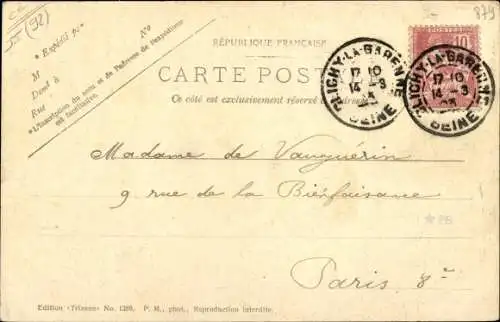 (92)
879
* Expédié par N°
M
Demt à
Rue
* L'inscription du nom et de l'adresse de l'expéditeur
est facultative.
RÉPUBLIQUE FRANÇAISE
CARTE POSTALE
Ce côté est exclusivement réservé à l'adresse
POSTES
10
CLICHY-LA-GARENNE
17 10
14 -3
03
SEINE
CLICHY-LA-GARENNE
17 10
14 -3
03
SEINE
Madame de Vauguérin
9 rue de la Bienfaisance
Paris 8e
Edition «Trianon» No. 1269. P. M., phot., Reproduction interdite.